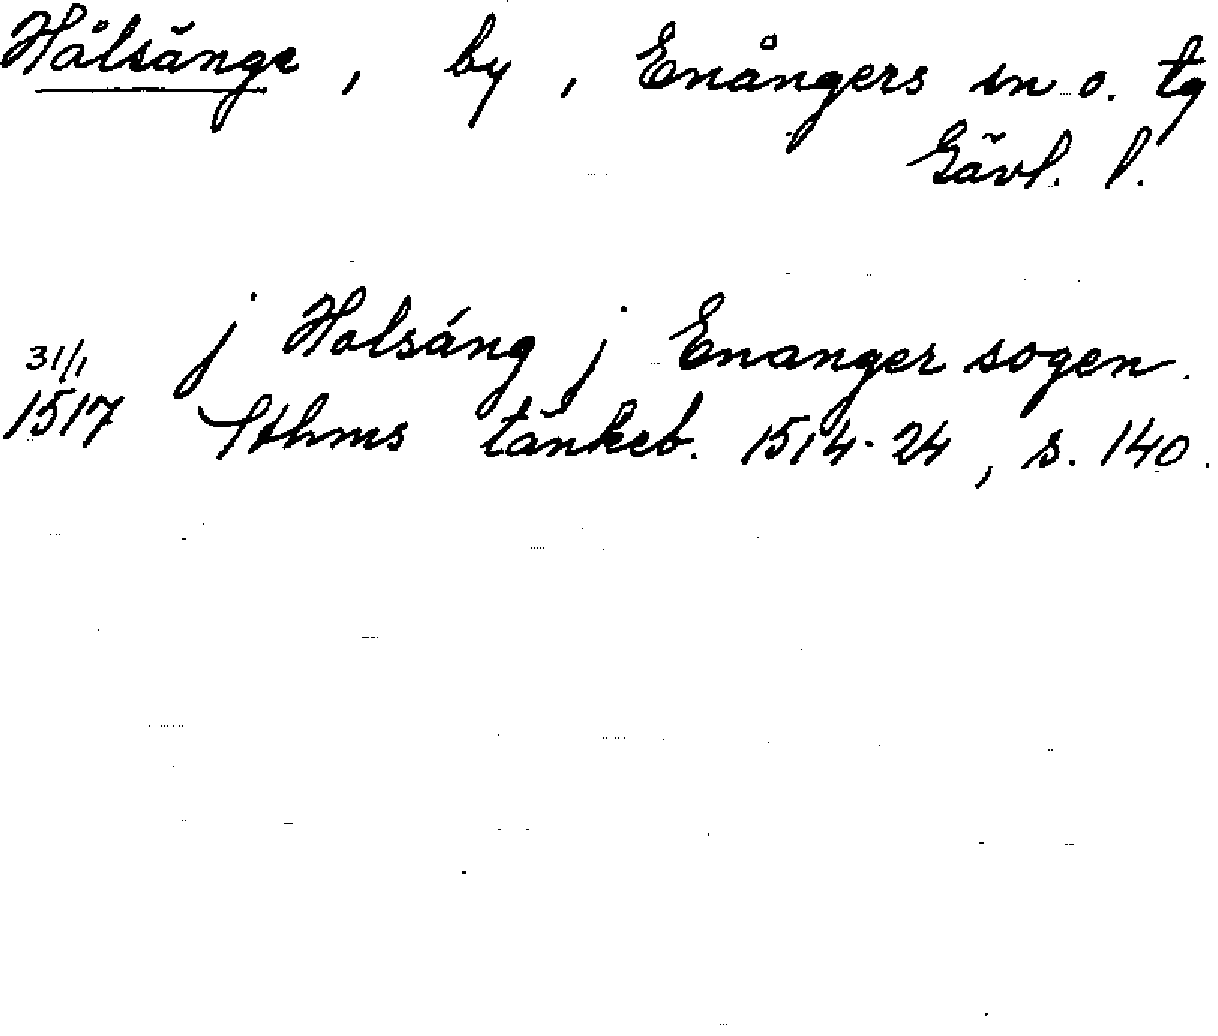 Hålsänge, by, Enångers sn o. tg
Gävl. l.
31/1 j Holsáng j Enanger sogen.
1517 Sthms tänkeb. 1514-24, s. 140.